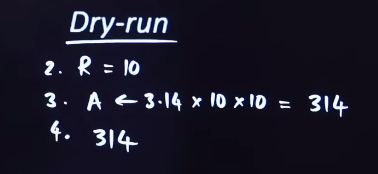 Dry-run
2. R = 10
3. A ← 3.14 × 10 × 10 = 314
4. 314